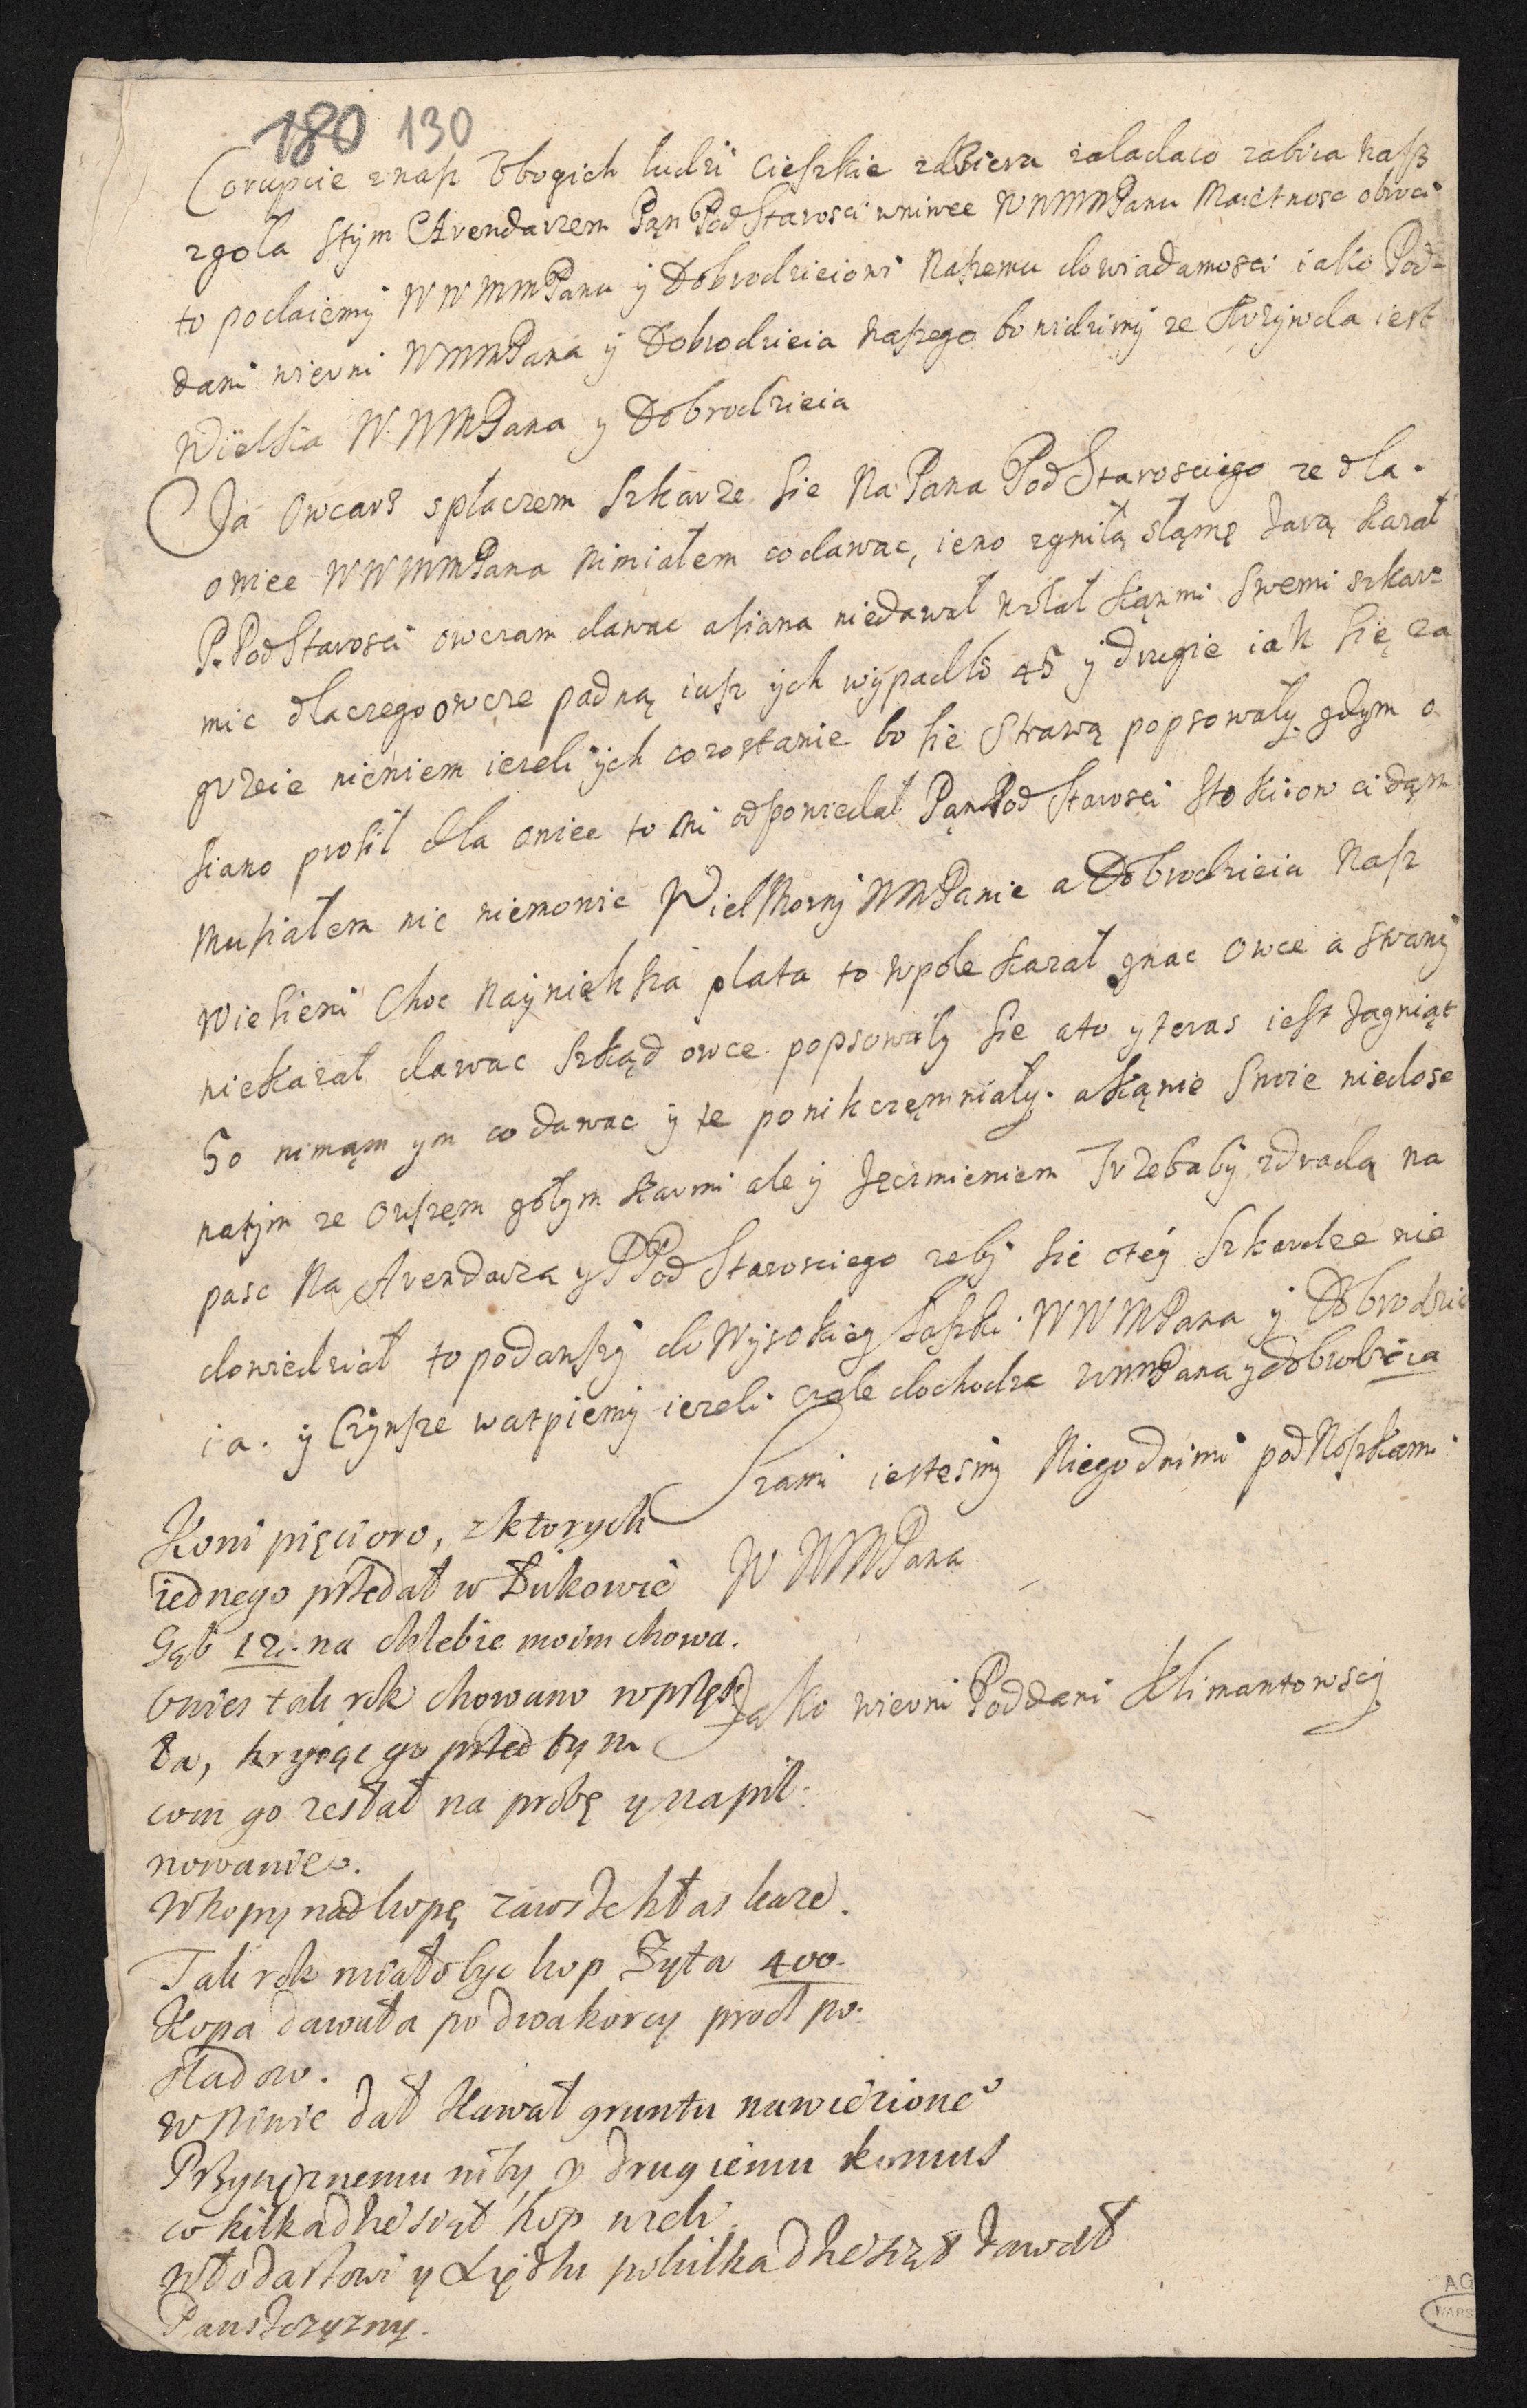 180 130
Corupcie znasz Vbogich ludzi cieszkie zdziera zaladaco zabira nasz
zgola stym Arendarzem Pąn PodStarosci wniwec WNMMPanu Maiętnosc obroci
to podaiemÿ WWMMPanu ÿ Dobrodzieiowi Naszemu do wiadamosci iako Pod-
dani wierni WMMPana ÿ Dobrodzieia naszego bo widzimÿ ze krzÿwda iest
Wielka WWMPana y Dobrodzieia
Ja Owcars spłaczem szkarze sie Na Pana PodStarosciego ze dla
owiec WWMMPana nimiałem co dawac, ieno zgniłą słąmę Jarą kazał
P. PodStarosci owczam dawac a siana niedawał wolał kąnmi swemi szkar-
mic dlaczego owcze padną iusz ÿch wÿpadło 45 ÿ drugie iak się za
grzeie niewiem iezeli ÿch co zostanie bo sie strawą popsowały gdym o
siano prosił dla owiec to mi odpowiedał Pąn PodStarosci sto kiiow ci dąm
musiałem nic niemowic WielMoznÿ WMPanie a Dobrodzieiu Nasz
wiesieni choc naÿwiększa plata to wpole kazał gnac owce a strawÿ
niekazał dawac szkąd owce popsowałÿ sie a to y teras iest Jagniąt
50 nimąm ym co dawac ÿ te ponikczęmniałÿ. a kąnie swoie niedosc
natÿm ze owszęm gołÿm karmi ale ÿ Jęczmieniem Trzebabÿ zdradą na
pasc Na Arendarza y PPodStarosciego zebÿ sie otéÿ szkardze nie
dowiedział to podawszÿ do Wÿsokieÿ łaszki WWMPana ÿ Dobrodzie
ia. ÿ Czÿnsze watpiemÿ iezeli czale dochodzą WMMPana y dobrodzieia
Szami iestesmÿ Niegodnimi pod Noszkami
WWMPana
Jako wierni Poddani Klimantowscÿ
Koni pięcioro, z ktorych
iednego przedał w Łukowie
Gęb 12. na chlebie moim chowa.
Owies tali rok chowano wprzęt
ła, kryiąc go przed tym
com go zesłał na probę y napil-
nowanie.
W kopy nad kopę zawsze kłas kaze.
Tali rok miało byc kop Zyta 400.
Kopa dawała po dwa korcy procz po-
sladow.
W Niwie dał Kawał gruntu nawiezione
Przywoznemu niby, y drugiemu komus
co kilkadziesiąt kop wzeli.
Włodarzowi y Lędzu po kilkadziesiąt dawał
Panszczyzny.
AG
WARS